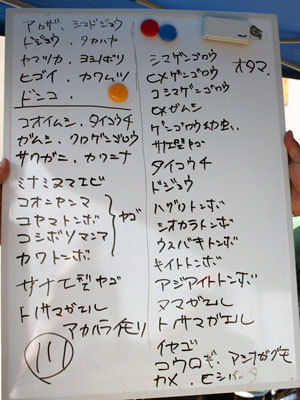 アカザ、シマドジョウ
ドジョウ、タカハヤ
ヤマツカ・ヨシノボリ
ヒゴイ、カワムツ
ドンコ.
コオイムシ、タイコウチ
ガムシ、クロゲンゴロウ
サワガニ、カワニナ
ミナミヌマエビ
コオニヤンマ
コヤマトンボ
コシボソヤンマ
カワトンボ
ヤゴ
サナエ型ヤゴ
トノサマガエル
アカハライモリ
シマゲンゴロウ
ヒメゲンゴロウ
コシマゲンゴロウ
ヒメガムシ
ゲンゴロウ幼虫、
サナエ型ヤゴ
タイコウチ
ドジョウ
ハグロトンボ
シオカラトンボ
ウスバキトンボ
キイトトンボ
アジアイトトンボ
ヌマガエル
トノサマガエル
イモリ
コウロギ、アシナガグモ
カメ、ヒシバッ
オタマ.